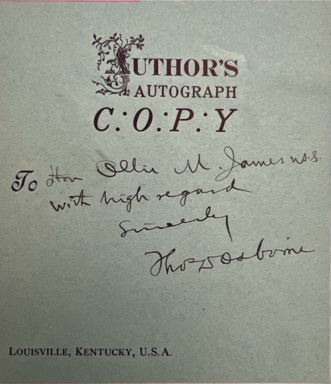 AUTHOR'S
AUTOGRAPH
C∴O∴P∴Y
To Hon Ollie M. James U.S.S.
with high regard
Sincerely
Thos D Osborne
LOUISVILLE, KENTUCKY, U.S.A.